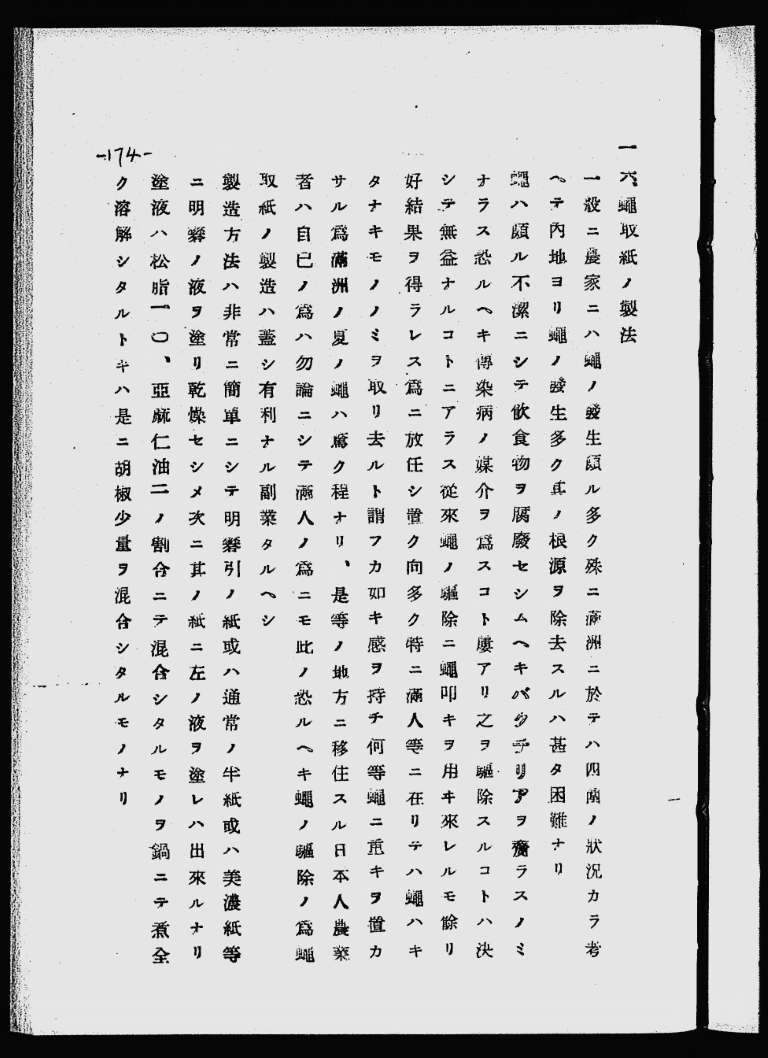 一六、蠅取紙ノ製法
一般ニ農家ニハ蠅ノ發生頗ル多ク殊ニ滿洲ニ於テハ四圍ノ狀況カラ考
ヘテ內地ヨリ蠅ノ發生多ク其ノ根源ヲ除去スルハ甚タ困難ナリ
蠅ハ頗ル不潔ニシテ飮食物ヲ腐廢セシムヘキバクテリアヲ齎ラスノミ
ナラス恐ルヘキ傳染病ノ媒介ヲ爲スコト屢アリ之ヲ驅除スルコトハ決
シテ無益ナルコトニアラス從來蠅ノ驅除ニ蠅叩キヲ用ヰ來レルモ餘リ
好結果ヲ得ラレス爲ニ放任シ置ク向多ク特ニ滿人等ニ在リテハ蠅ハキ
タナキモノノミヲ取リ去ルト謂フカ如キ感ヲ持チ何等蠅ニ重キヲ置カ
サル爲滿洲ノ夏ノ蠅ハ驚ク程ナリ、是等ノ地方ニ移住スル日本人農業
者ハ自己ノ爲ハ勿論ニシテ滿人ノ爲ニモ此ノ恐ルヘキ蠅ノ驅除ノ爲蠅
取紙ノ製造ハ蓋シ有利ナル副業タルヘシ
製造方法ハ非常ニ簡單ニシテ明礬引ノ紙或ハ通常ノ半紙或ハ美濃紙等
ニ明礬ノ液ヲ塗リ乾燥セシメ次ニ其ノ紙ニ左ノ液ヲ塗レハ出來ルナリ
塗液ハ松脂一〇、亞麻仁油二ノ割合ニテ混合シタルモノヲ鍋ニテ煮全
ク溶解シタルトキハ是ニ胡椒少量ヲ混合シタルモノナリ
-174-